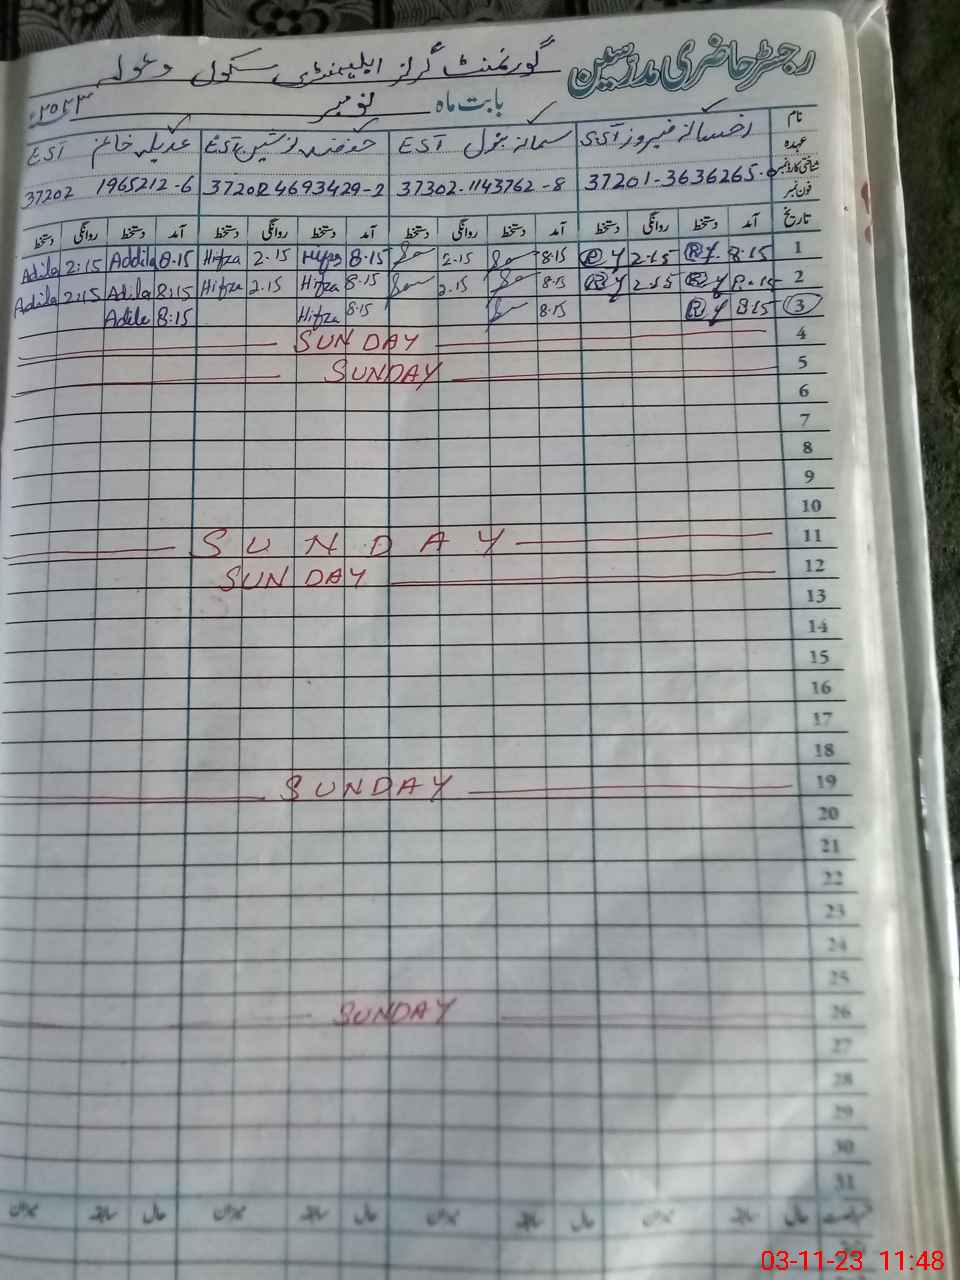 رجسٹر حاضری مدرسین گورنمنٹ گرلز ایلیمنٹری سکول
بابت ماہ نومبر ۲۰۲۳ء
نام رخسانہ فیروز SST سمانہ بتول EST EST عدیلہ خانم EST
عہدہ
شناختی کارڈ نمبر 37201-3636265- 37302-1143762-8 37202 4693429-2 37202 1965212-6
فون نمبر
تاریخ آمد دستخط روانگی دستخط آمد دستخط روانگی دستخط آمد دستخط روانگی دستخط آمد دستخط روانگی دستخط
1 8.15 RY 2.15 RY 8.15 2.15 8.15 Hifza 2.15 Hifza 8.15 Addila 2:15 Adila
2 8.15 RY 2.15 RY 8.15 2.15 8.15 Hifza 2.15 Hifza 8:15 Adila 2:15 Adila
3 8.15 RY 8.15 8.15 Hifza 8:15 Adila
4 SUNDAY
5 SUNDAY
6
7
8
9
10
11 SUNDAY
12 SUNDAY
13
14
15
16
17
18
19 SUNDAY
20
21
22
23
24
25
26 SUNDAY
27
28
29
30
31
حال سابقہ میزان حال سابقہ میزان حال سابقہ میزان حال سابقہ میزان
03-11-23 11:48